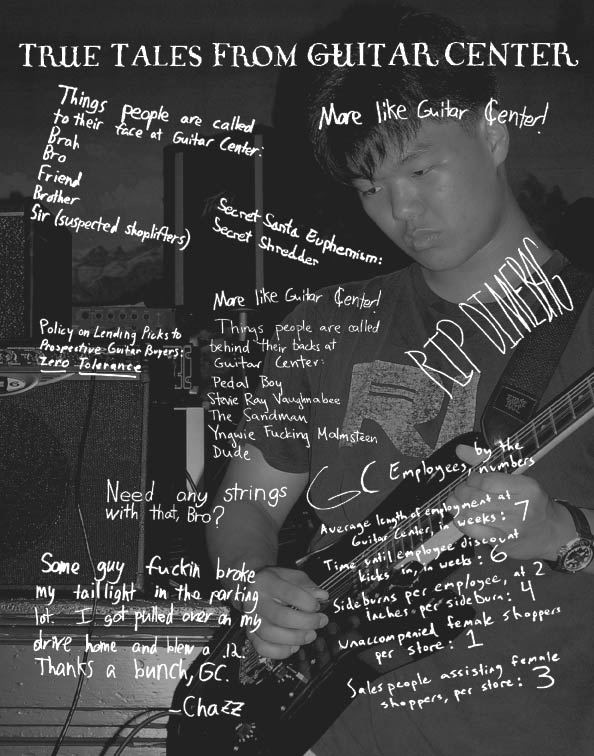 TRUE TALES FROM GUITAR CENTER
Things people are called
to their face at Guitar Center:
Brah
Bro
Friend
Brother
Sir (suspected shoplifters)
More like Guitar ¢enter!
Secret Santa Euphemism:
Secret Shredder
RIP DIMEBAG
More like Guitar ¢enter!
Policy on Lending Picks to
Prospective Guitar Buyers:
Zero Tolerance
Things people are called
behind their backs at
Guitar Center:
Pedal Boy
Stevie Ray Vaughnabee
The Sandman
Yngwie Fucking Malmsteen
Dude
Need any strings
with that, Bro?
GC Employees, by the
numbers
Average length of employment at
Guitar Center, in weeks: 7
Time until employee discount
kicks in, in weeks: 6
Sideburns per employee, at 2
inches per sideburn: 4
Unaccompanied female shoppers
per store: 1
Sales people assisting female
shoppers, per store: 3
Some guy fuckin broke
my taillight in the parking
lot. I got pulled over on my
drive home and blew a .12.
Thanks a bunch, GC.
-Chazz